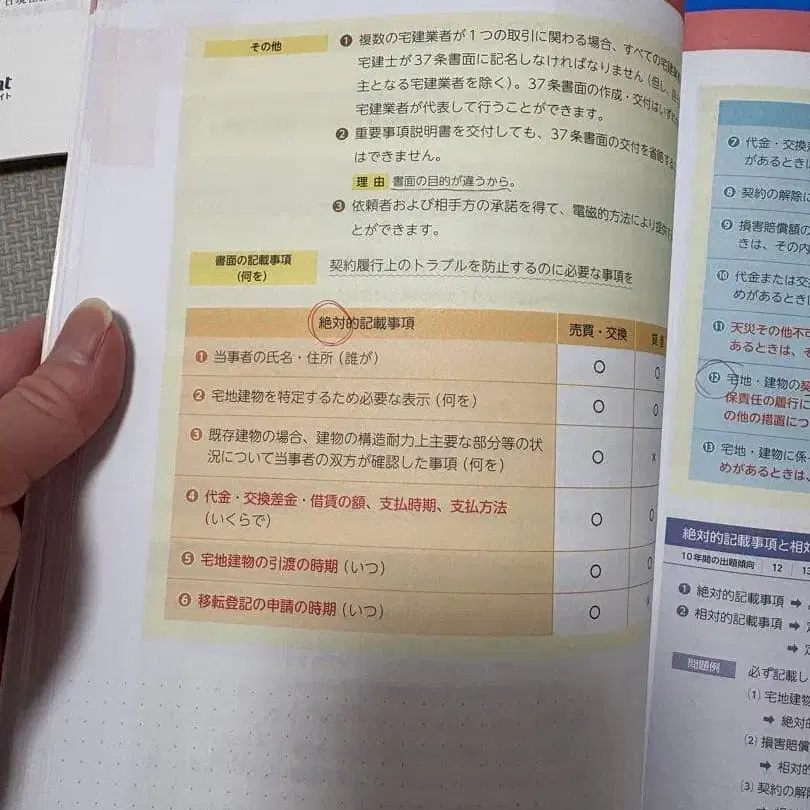 その他
❶ 複数の宅建業者が1つの取引に関わる場合、すべての宅建
宅建士が37条書面に記名しなければなりません（但し、
主となる宅建業者を除く）。37条書面の作成・交付は
宅建業者が代表して行うことができます。
❷ 重要事項説明書を交付しても、37条書面の交付を省略する
はできません。
理由 書面の目的が違うから。
❸ 依頼者および相手方の承諾を得て、電磁的方法により提供
とができます。
書面の記載事項
（何を）
契約履行上のトラブルを防止するのに必要な事項を
絶対的記載事項 売買・交換
❶ 当事者の氏名・住所（誰が） ○ ○
❷ 宅地建物を特定するため必要な表示（何を） ○ ○
❸ 既存建物の場合、建物の構造耐力上主要な部分等の状
況について当事者の双方が確認した事項（何を） ○ ×
❹ 代金・交換差金・借賃の額、支払時期、支払方法
（いくらで） ○ ○
❺ 宅地建物の引渡の時期（いつ） ○ ○
❻ 移転登記の申請の時期（いつ） ○
❼ 代金・交換
があるときは
❽ 契約の解除に
❾ 損害賠償額の
きは、その内
❿ 代金または交
めがあるときは
⓫ 天災その他不可
あるときは、そ
⓬ 宅地・建物の契
保責任の履行に
の他の措置につ
⓭ 宅地・建物に係
めがあるときは、
絶対的記載事項と相対
10年間の出題傾向 12 13
❶ 絶対的記載事項 ➡
❷ 相対的記載事項 ➡
➡
問題例 必ず記載し
(1) 宅地建物
➡ 絶対的
(2) 損害賠償
➡ 相対的
(3) 契約の解